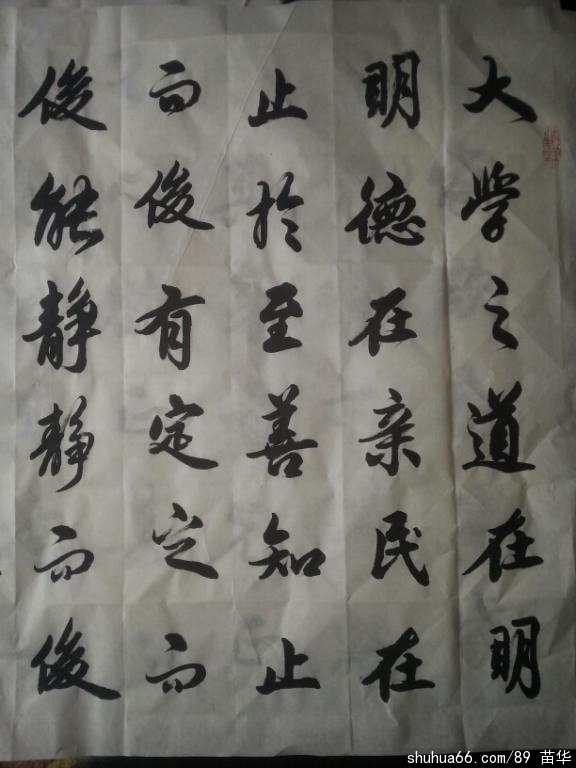 大学之道在明
明德在亲民在
止於至善知止
而後有定定而
後能静静而後
shuhua66.com/89 苗华